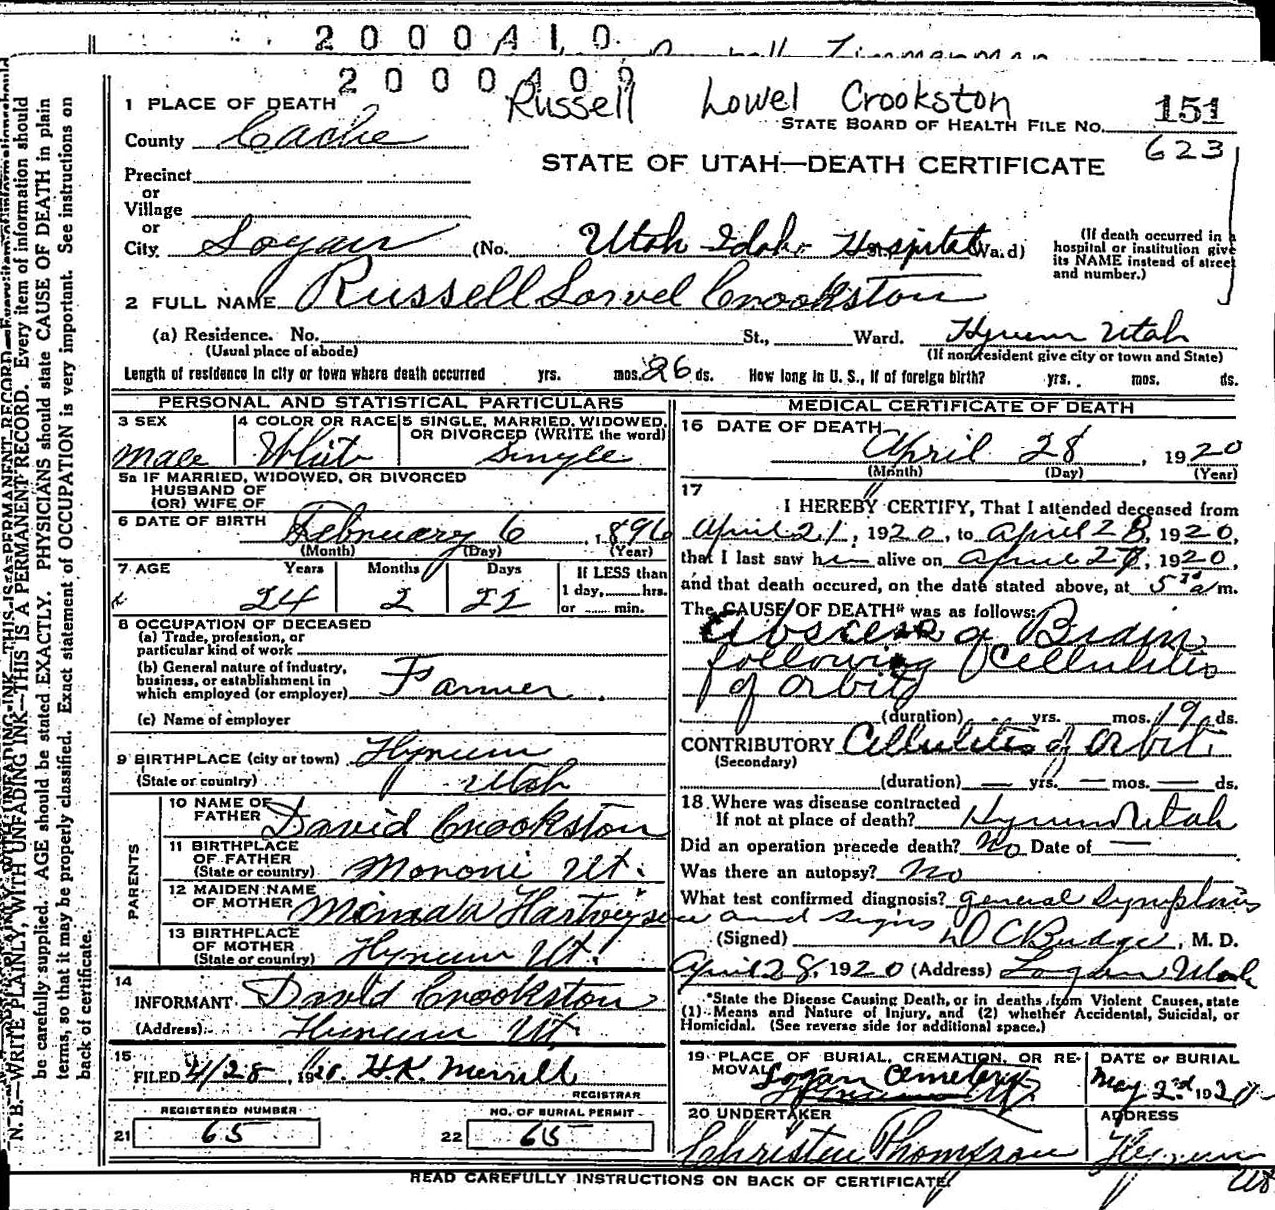 2000410
2000409
Russell Lowel Crookston
151
1 PLACE OF DEATH
STATE BOARD OF HEALTH FILE No.
County Cache
623
STATE OF UTAH—DEATH CERTIFICATE
Precinct
or
Village
or
City Logan (No. Utah Idaho Hospital St. Ward)
(If death occurred in a hospital or institution give its NAME instead of street and number.)
2 FULL NAME Russell Lowel Crookston
(a) Residence. No. St., Ward. Hyrum Utah
(Usual place of abode) (If nonresident give city or town and State)
Length of residence in city or town where death occurred yrs. mos. 26 ds. How long in U. S., if of foreign birth? yrs. mos. ds.
PERSONAL AND STATISTICAL PARTICULARS
3 SEX 4 COLOR OR RACE 5 SINGLE, MARRIED, WIDOWED, OR DIVORCED (WRITE the word)
Male White Single
5a IF MARRIED, WIDOWED, OR DIVORCED
HUSBAND OF
(OR) WIFE OF
6 DATE OF BIRTH February 6, 1896
(Month) (Day) (Year)
7 AGE Years Months Days If LESS than
1 day, hrs.
or min.
24 2 22
8 OCCUPATION OF DECEASED
(a) Trade, profession, or
particular kind of work
(b) General nature of industry,
business, or establishment in
which employed (or employer) Farmer
(c) Name of employer
9 BIRTHPLACE (city or town) Hyrum
(State or country) Utah
PARENTS
10 NAME OF
FATHER David Crookston
11 BIRTHPLACE
OF FATHER
(State or country) Moroni Ut.
12 MAIDEN NAME
OF MOTHER Hartvigsen
13 BIRTHPLACE
OF MOTHER
(State or country) Hyrum Ut.
14
INFORMANT David Crookston
(Address) Hyrum Ut.
15
FILED 4/28, 1920. H.K. Merrill
REGISTRAR
REGISTERED NUMBER NO. OF BURIAL PERMIT
21 65 22 65
MEDICAL CERTIFICATE OF DEATH
16 DATE OF DEATH
April 28, 1920
(Month) (Day) (Year)
17
I HEREBY CERTIFY, That I attended deceased from
April 21, 1920, to April 28, 1920,
that I last saw him alive on April 27, 1920,
and that death occured, on the date stated above, at 5 a m.
The CAUSE OF DEATH* was as follows:
Abscess of Brain
following Cellulitis
of orbit
(duration) yrs. mos. 19 ds.
CONTRIBUTORY Cellulitis of orbit
(Secondary)
(duration) — yrs. — mos. — ds.
18 Where was disease contracted
If not at place of death? Hyrum Utah
Did an operation precede death? No Date of —
Was there an autopsy? No
What test confirmed diagnosis? general symptoms
and signs
(Signed) D C Budge, M. D.
April 28, 1920 (Address) Logan, Utah
*State the Disease Causing Death, or in deaths from Violent Causes, state
(1) Means and Nature of Injury, and (2) whether Accidental, Suicidal, or
Homicidal. (See reverse side for additional space.)
19 PLACE OF BURIAL, CREMATION, OR RE-
MOVAL Logan Cemetery
DATE OF BURIAL
May 2nd 1920
20 UNDERTAKER
Christen Thomsson
ADDRESS
Hyrum
Ut
READ CAREFULLY INSTRUCTIONS ON BACK OF CERTIFICATE
N. B.—WRITE PLAINLY, WITH UNFADING INK—THIS IS A PERMANENT RECORD. Every item of information should
be carefully supplied. AGE should be stated EXACTLY. PHYSICIANS should state CAUSE OF DEATH in plain
terms, so that it may be properly classified. Exact statement of OCCUPATION is very important. See instructions on
back of certificate.